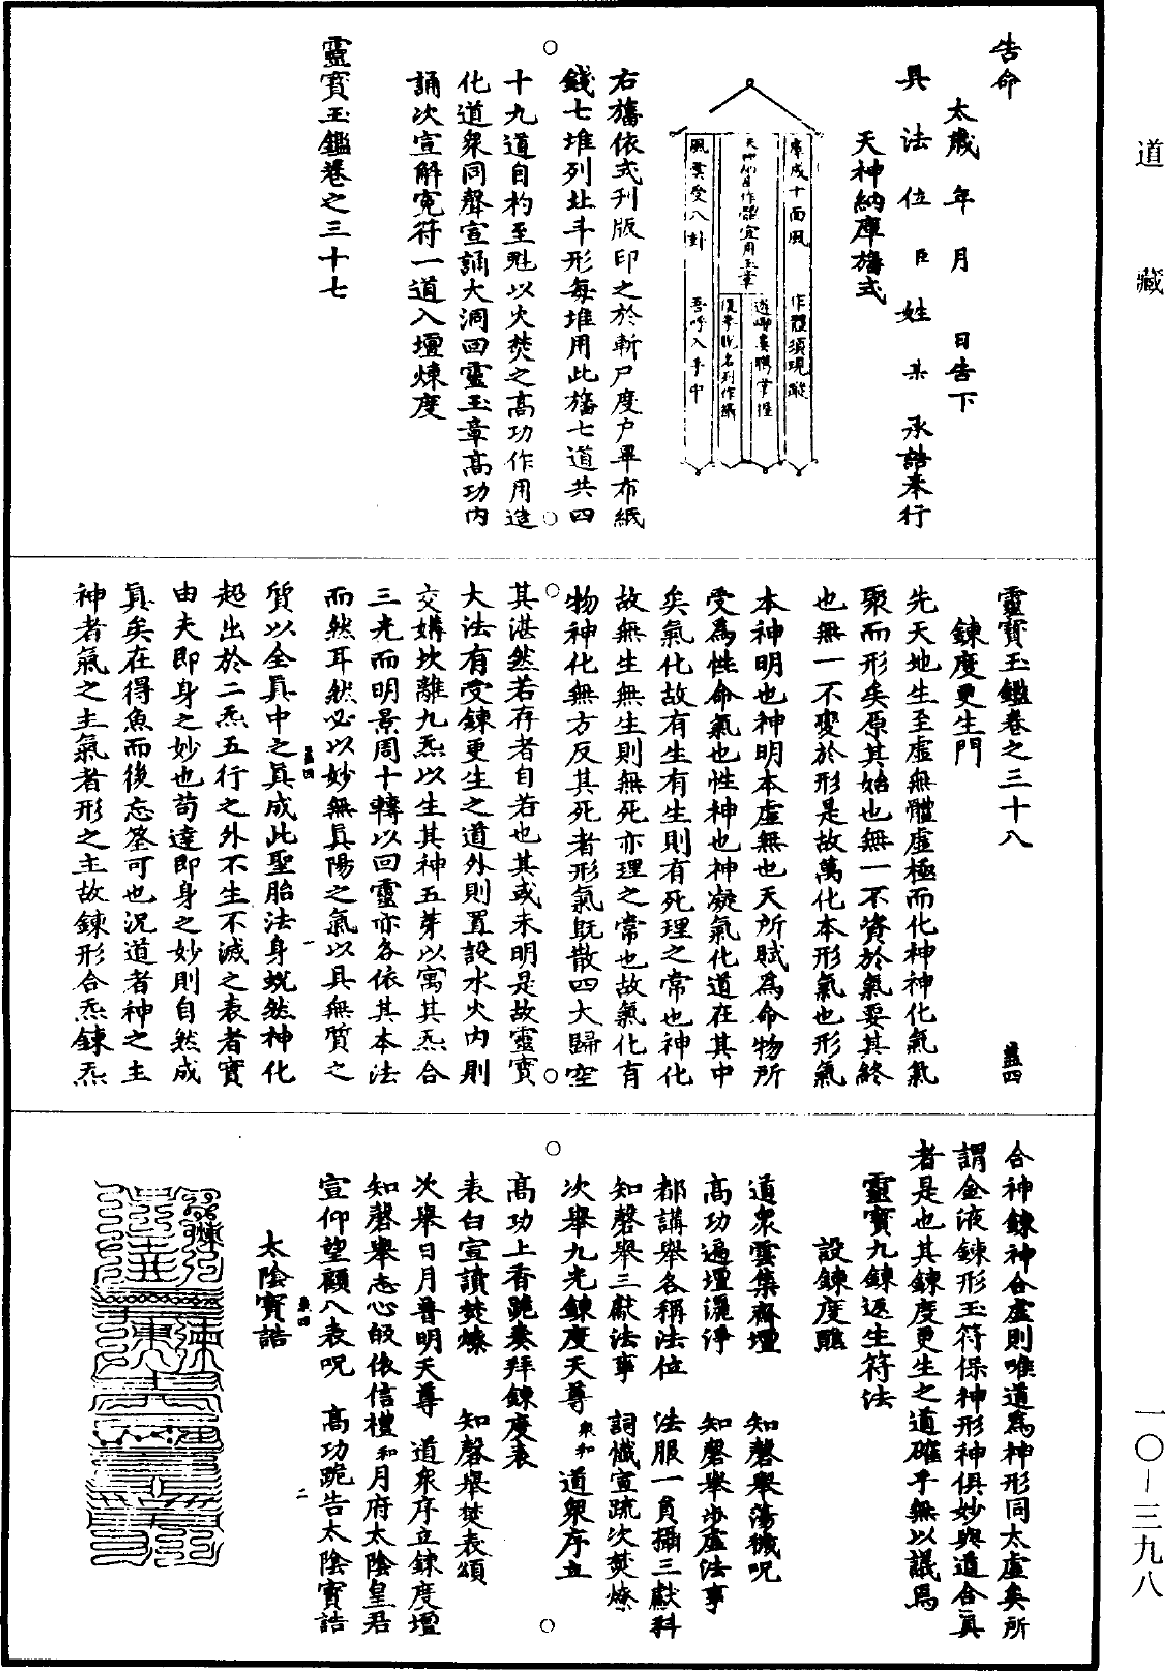 道藏
告命
太歲年月日告下
具法位臣姓某承誥奉行
天神納庫旛式
庫成十面風
作覆須現蹤
風雲受八卦
吾呼入寺中
右旛依式刋版印之於斬尸度户畢布紙
錢七堆列北斗形每堆用此旛七道共四
十九道自杓至魁以火焚之高功作用造
化道衆同聲宣誦大洞回靈玉章高功内
誦次宣解寃符一道入壇煉度
靈寳玉鑑卷之三十七
靈寳玉鑑卷之三十八
鍊度更生門
先天地生至虚無體虚極而化神神化氣氣
聚而形矣原其始也無一不資於氣要其終
也無一不變於形是故萬化本形氣也形氣
本神明也神明本虚無也天所賦為命物所
受為性命氣也性神也神凝氣化道在其中
矣氣化故有生有生則有死理之常也神化
故無生無生則無死亦理之常也故氣化有
物神化無方反其死者形氣旣散四大歸空
其湛然若存者自若也其或未明是故靈寳
大法有受鍊更生之道外則置設水火内則
交媾坎離九炁以生其神五芽以寓其炁合
三光而明景周十轉以回靈亦各依其本法
而然耳然必以妙無眞陽之氣以具無質之
質以全眞中之眞成此聖胎法身蛻然神化
超出於二炁五行之外不生不滅之表者實
由夫即身之妙也苟達即身之妙則自然成
眞矣在得魚而後忘筌可也況道者神之主
神者氣之主氣者形之主故鍊形合炁鍊炁
合神鍊神合虚則唯道為神形同太虚矣所
謂金液鍊形玉符保神形神俱妙與道合眞
者是也其鍊度更生之道確乎無以議為
靈寳九鍊返生符法
設鍊度醮
道衆雲集齋壇 知磬舉蕩穢呪
高功遍壇灑淨 知磬舉步虚法事
都講舉各稱法位 法服一員攝三獻科
知磬舉三獻法事 詞懺宣疏次焚燎
次舉九光鍊度天尊衆和 道衆序立
高功上香跪奏拜鍊度表
表白宣讀焚燎 知磬舉焚表頌
次舉日月普明天尊 道衆序立鍊度壇
知磬舉志心皈依信禮和月府太陰皇君
宣仰望顧八表呪 高功跪告太陰寳誥
太陰寳誥
一〇—三九八